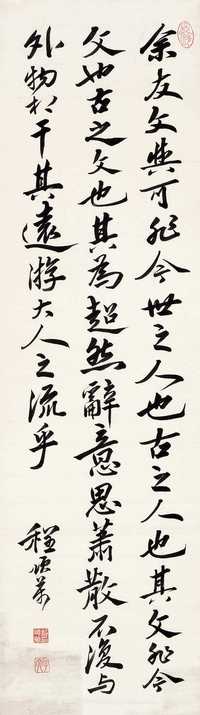 余友文与可非今世之人也古之人也其文非今
文也古之文也其為超然辭意思蕭散不復与
外物相干其遠游大人之流乎
程頌萬